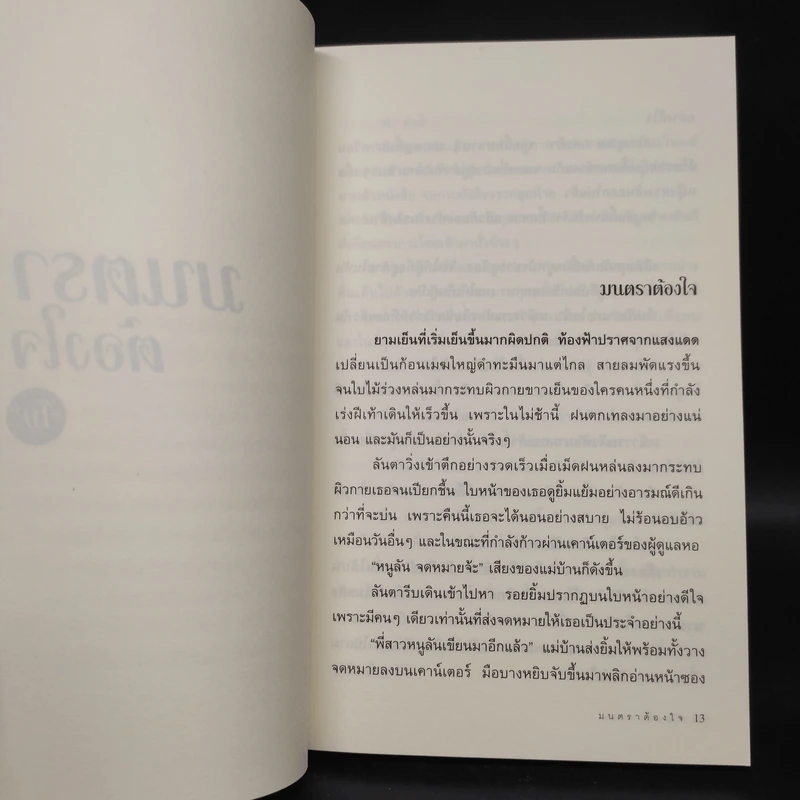 มนตราต้องใจ
ยามเย็นที่เริ่มเย็นขึ้นมากผิดปกติ ท้องฟ้าปราศจากแสงแดด
เปลี่ยนเป็นก้อนเมฆใหญ่ดำทะมึนมาแต่ไกล สายลมพัดแรงขึ้น
จนใบไม้ร่วงหล่นมากระทบผิวกายขาวเย็นของใครคนหนึ่งที่กำลัง
เร่งฝีเท้าเดินให้เร็วขึ้น เพราะในไม่ช้านี้ ฝนตกเทลงมาอย่างแน่
นอน และมันก็เป็นอย่างนั้นจริงๆ
ลันตาวิ่งเข้าตึกอย่างรวดเร็วเมื่อเม็ดฝนหล่นลงมากระทบ
ผิวกายเธอจนเปียกชื้น ใบหน้าของเธอดูยิ้มแย้มอย่างอารมณ์ดีเกิน
กว่าที่จะบ่น เพราะคืนนี้เธอจะได้นอนอย่างสบาย ไม่ร้อนอบอ้าว
เหมือนวันอื่นๆ และในขณะที่กำลังก้าวผ่านเคาน์เตอร์ของผู้ดูแลหอ
“หนูลัน จดหมายจ้ะ” เสียงของแม่บ้านก็ดังขึ้น
ลันตารีบเดินเข้าไปหา รอยยิ้มปรากฏบนใบหน้าอย่างดีใจ
เพราะมีคนๆ เดียวเท่านั้นที่ส่งจดหมายให้เธอเป็นประจำอย่างนี้
“พี่สาวหนูลันเขียนมาอีกแล้ว” แม่บ้านส่งยิ้มให้พร้อมทั้งวาง
จดหมายลงบนเคาน์เตอร์ มือบางหยิบจับขึ้นมาพลิกอ่านหน้าซอง
มนตราต้องใจ 13